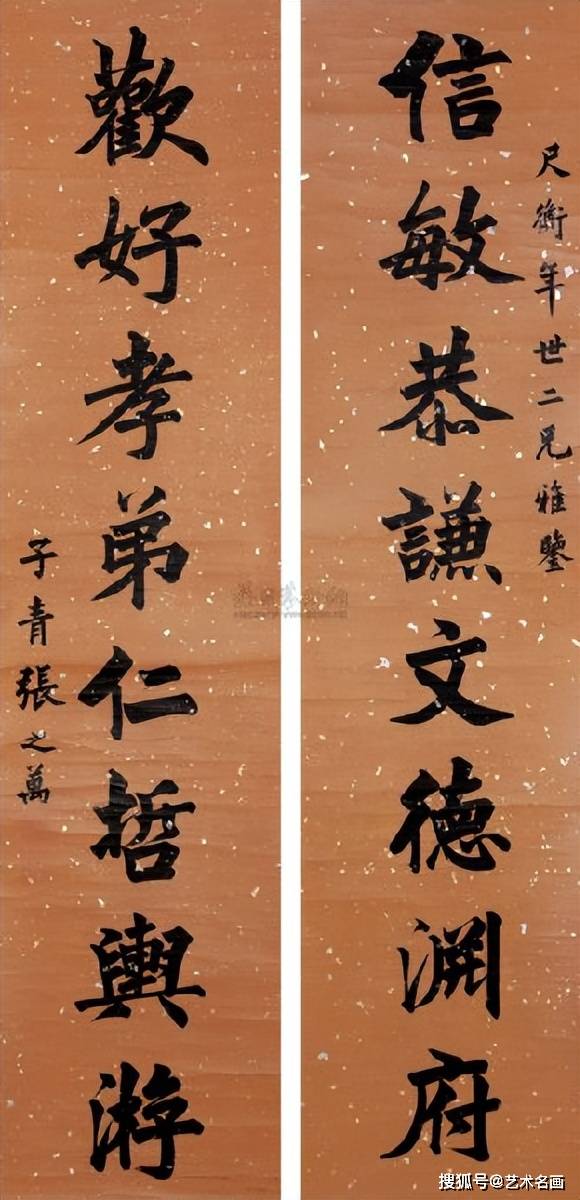 尺衡年世二兄雅鑒
信敏恭謙文德淵府
歡好孝弟仁哲輿游
子青張之萬
搜狐号@艺术名画